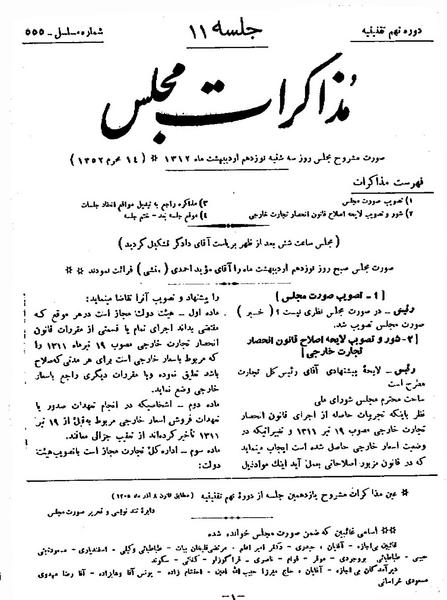 دوره نهم تقنینیه
جلسه ۱۱
شماره مسلسل - ۵۵۵
مذاکرات مجلس
صورت مشروح مجلس روز سه شنبه نوزدهم اردیبهشت ماه ۱۳۱۲ * (۱۴ محرم ۱۳۵۲)
فهرست مذاکرات
۱) تصویب صورت مجلس
۲) شور و تصویب لایحه اصلاح قانون انحصار تجارت خارجی
۳) مذاکره راجع به مواقع انعقاد جلسات
۴) موقع جلسه بعد - ختم جلسه
(مجلس ساعت شش بعد از ظهر بریاست آقای دادگر تشکیل گردید)
صورت مجلس صبح روز نوزدهم اردیبهشت ماه را آقای مؤید احمدی (منشی) قرائت نمودند
[۱ - تصویب صورت مجلس]
رئیس - در صورت مجلس نظری نیست؟ (خیر)
صورت مجلس تصویب شد.
[۲ - شور و تصویب لایحه اصلاح قانون انحصار
تجارت خارجی]
رئیس - لایحهٔ پیشنهادی آقای رئیس کل تجارت
مطرح است
ساحت محترم مجلس شورای ملی
نظر باینکه تجربیات حاصله از اجرای قانون انحصار
تجارت خارجی مصوب ۱۹ تیر ۱۳۱۱ و تغییراتیکه در
وضعیت اسعار خارجی حاصل شده است ایجاب مینماید
که در قانون مزبور اصلاحاتی بعمل آید اینک موادذیل
را پیشنهاد و تصویب آنرا تقاضا مینماید:
ماده اول - هیئت دولت مجاز است در هر موقع که
مقتضی بداند اجرای تمام یا قسمتی از مقررات قانون
انحصار تجارت خارجی مصوب ۱۹ تیر ماه ۱۳۱۱ را
که مربوط باسعار خارجی است برای هر مدتی که صلاح
باشد تعلیق نموده و یا مقررات دیگری راجع باسعار
خارجی وضع نماید.
ماده دوم - اشخاصیکه در انجام تعهدات صدور یا
تعهدات فروش اسعار خارجی مربوط بقبل از ۱۹ تیر
۱۳۱۱ تأخیر کرده‌اند از تعقیب جزائی معافند.
ماده سوم - اداره کل تجارت مجاز است با تصویب هیئت
دولت:
* عین مذاکرات مشروح یازدهمین جلسه از دورهٔ نهم تقنینیه (مطابق قانون ۸ آذر ماه ۱۳۰۵)
دایرهٔ تند نویسی و تحریر صورت مجلس
** اسامی غائبین که ضمن صورت مجلس خوانده شده
غائبین بی‌اجازه - آقایان: حیدری - دکتر امیر اعلم - مرتضی قلیخان بیات - طباطبائی وکیلی - اسفندیاری - مسعودثابتی
حبیبی - طباطبائی بروجردی - موقر - قوام - ناصری - قراگوزلو - کفائی - سکوند
دیرآمدگان بی‌اجازه - آقایان: حاج میرزا حبیب الله امین - احتشام زاده - یونس آقا وهابزاده - آقا رضا مهدوی
مسعودی خراسانی
-۱-